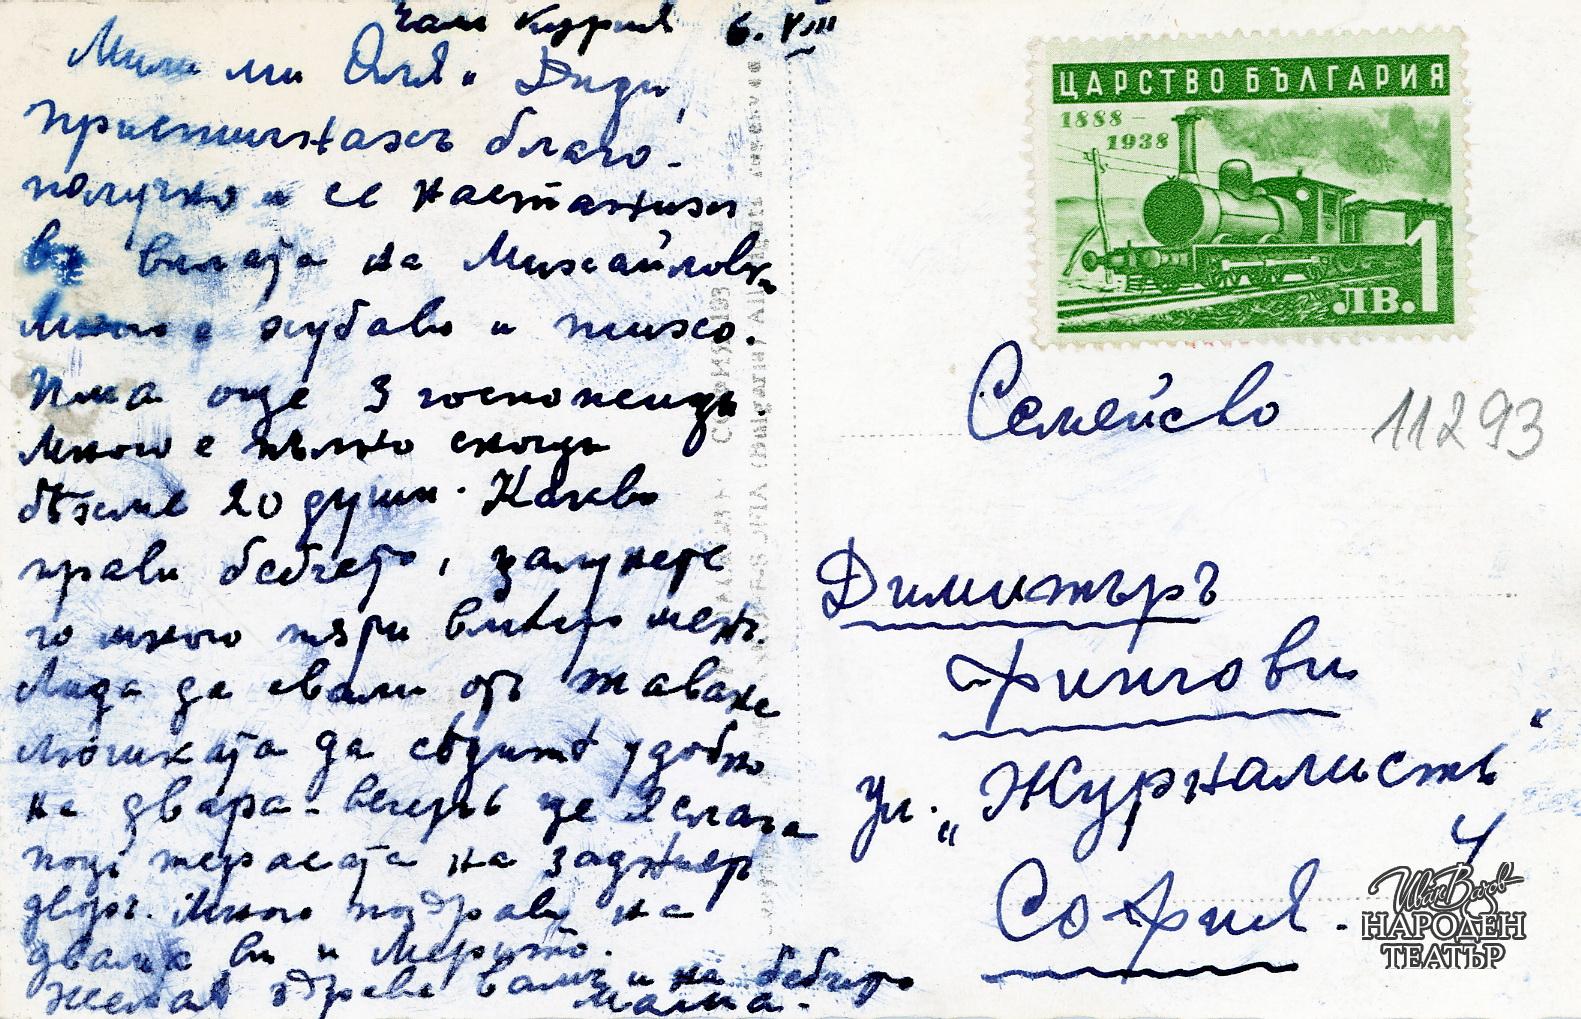 Чам Курия 6. VIII
Мили ми Оля и Диди,
Пристигнахъ благо-
получно и се настаних
въ вилата на Михайлови
Много е хубаво и тихо.
Има още 3 госпожици.
Много е пълно снощи
бѣхме 20 души. Какво
прави бебчето, целунете
го много пъти вмѣсто мен.
Лида да свали отъ тавана
люшката да сѣдитѣ удобно
на двора - вечерь ще я слага
подъ терасата на задния
дворъ. Много поздрави на
двамка ви и Мерито.
Желая здраве вамъ и на бебчето
мама.
ЦАРСТВО БЪЛГАРИЯ
1888 -
1938
ЛВ. 1
Семейсво
11293
Димитъръ
Фингови
ул. „Журналистъ“
4
София.
Иван Вазов
НАРОДЕН
ТЕАТЪР